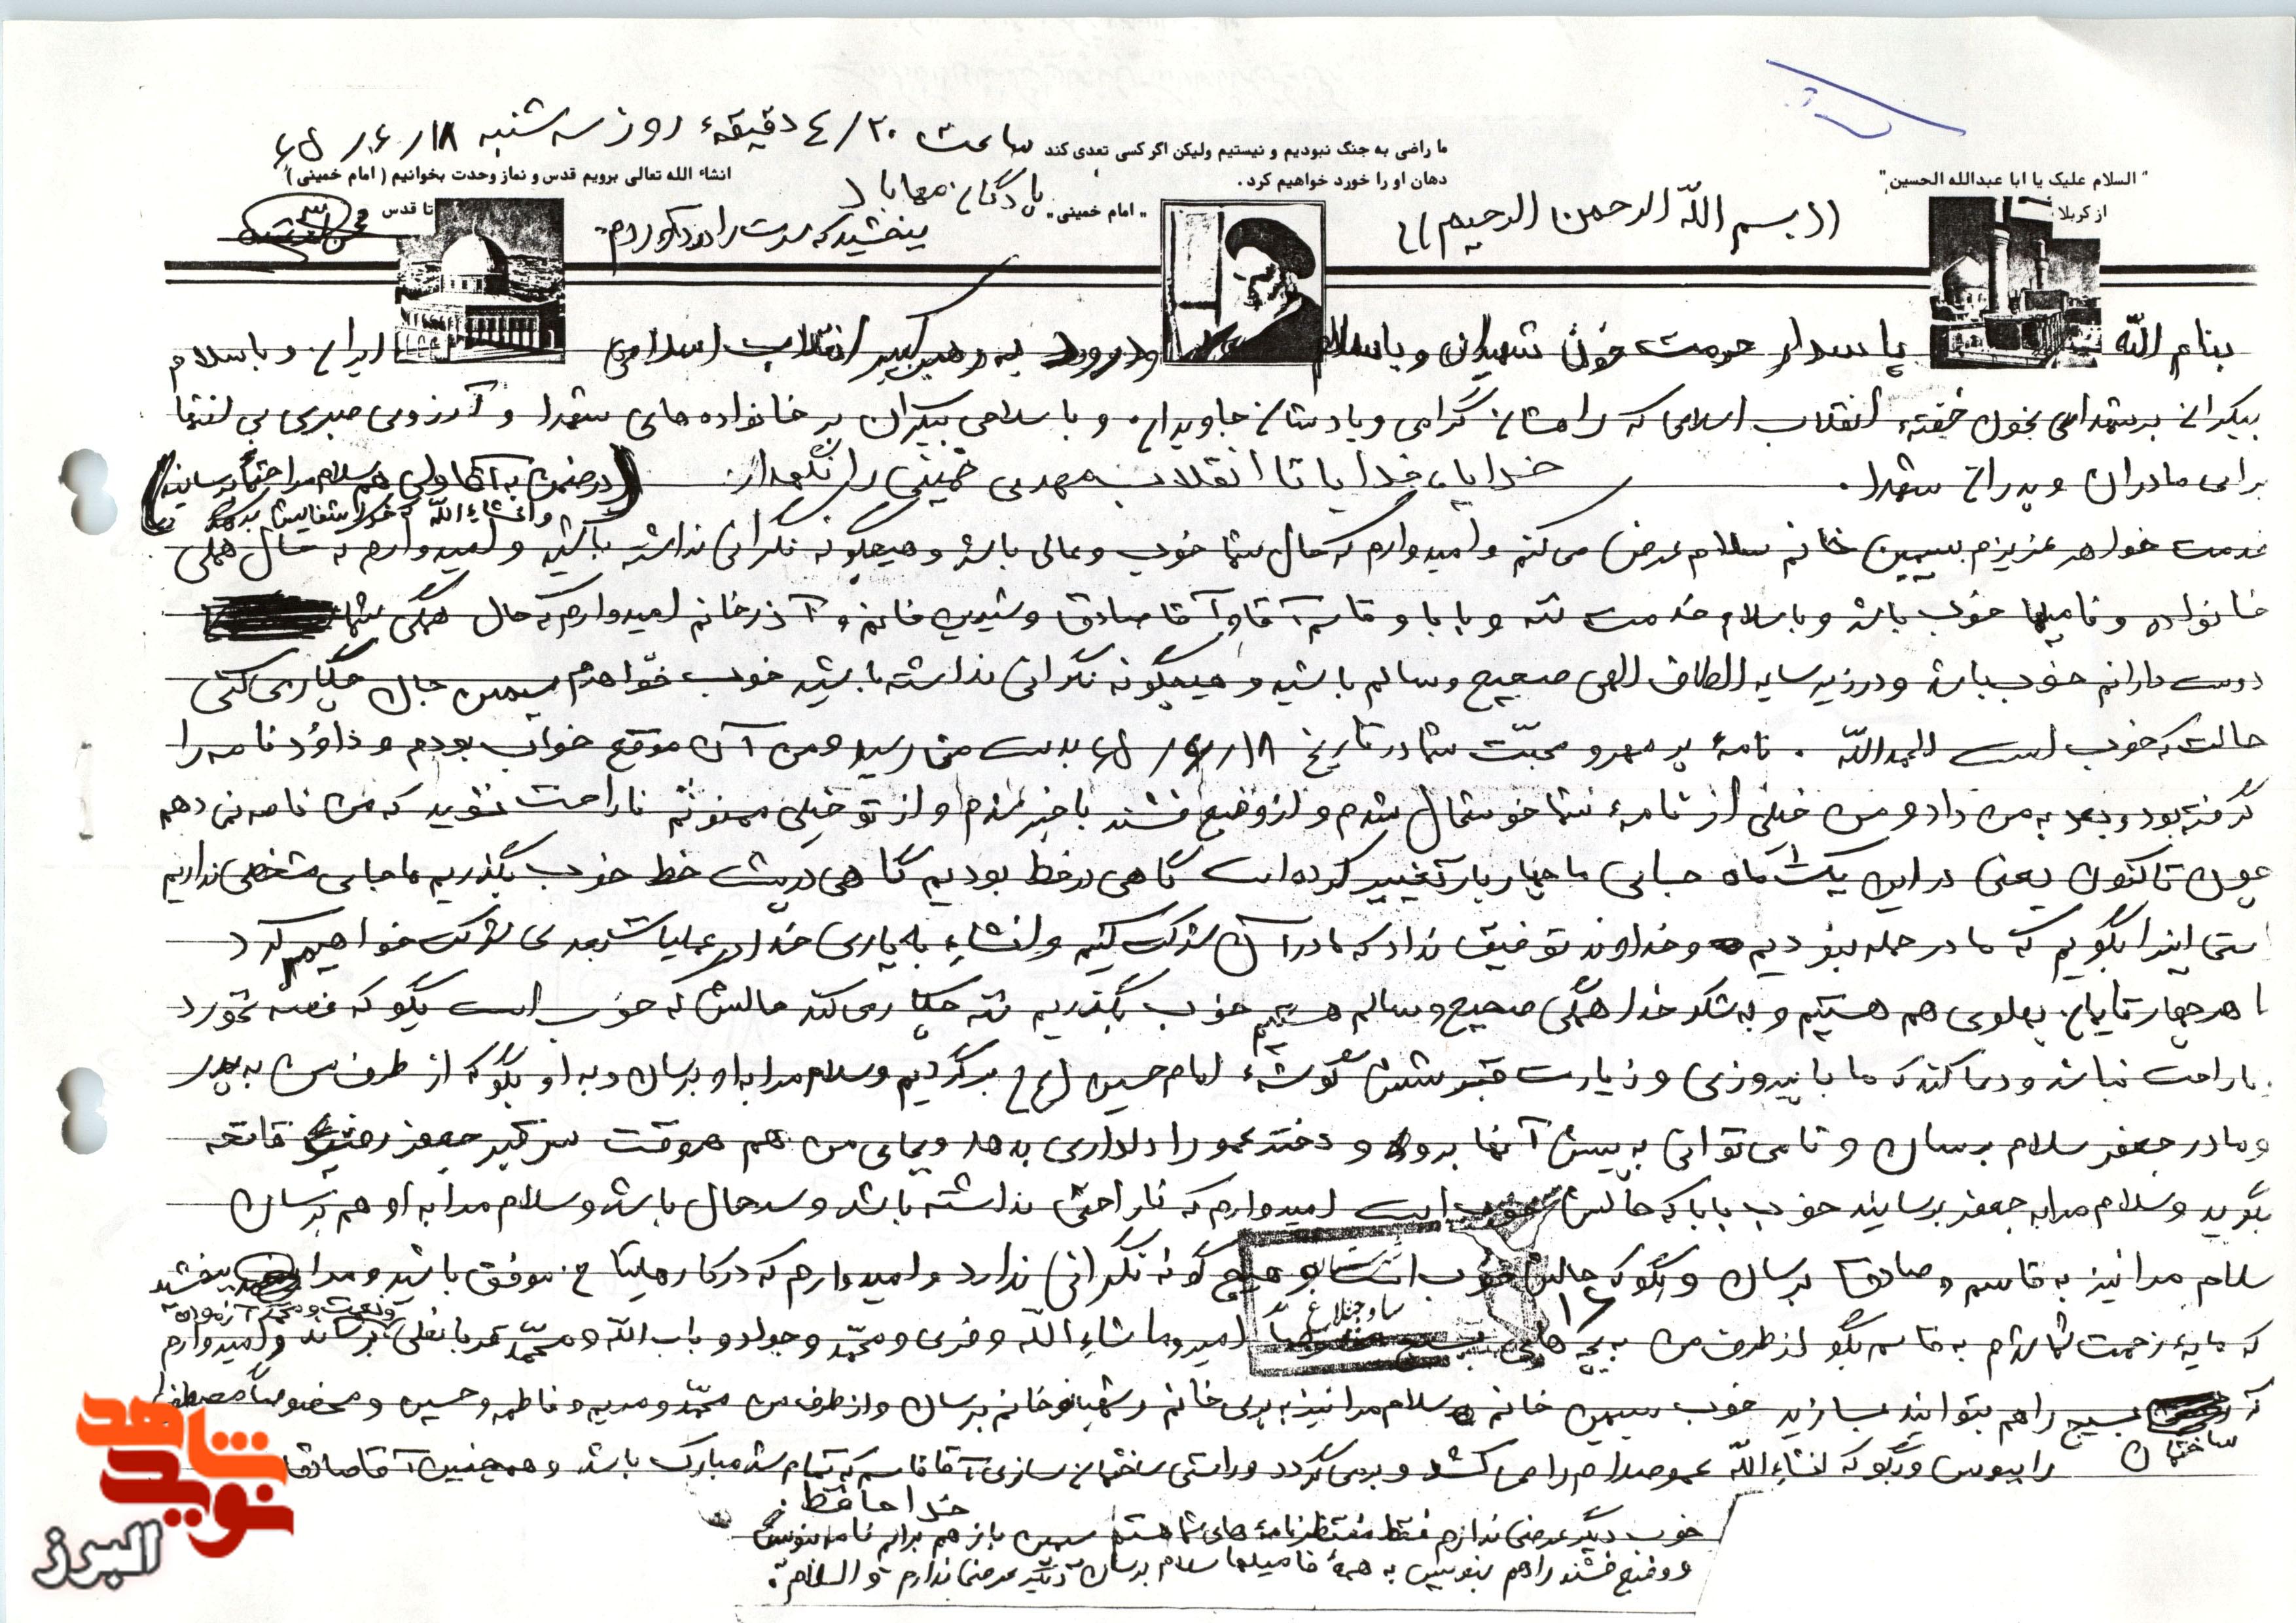 ساعت ۴/۲۰ دقیقهٔ روز سه شنبه ۱۸/۶/۶۵
ما راضی به جنگ نبودیم و نیستیم ولیکن اگر کسی تعدی کند
دهان او را خورد خواهیم کرد .
"امام خمینی"
"السلام علیک یا ابا عبدالله الحسین"
از کربلا
انشاء الله تعالی برویم قدس و نماز وحدت بخوانیم (امام خمینی)
تا قدس
پادگان مهاباد
((بسم اللّه الرحمن الرحیم))
بنام اللّه پاسدار حرمت خون شهیدان و با سلام و درود به رهبر کبیر انقلاب اسلامی ایران و با سلام
بیکران بر شهدای بخون خفتهٔ انقلاب اسلامی که راهشان گرامی و یادشان جاویدان و با سلامی بیکران بر خانواده های شهدا و آرزوی صبری بی انتها
برای مادران و پدران شهدا . خدایا، خدایا تا انقلاب مهدی خمینی را نگهدار .
(در ضمن به آقا ولی هم سلام مرا حتماً برسانید
و انشاء اللّه که خدا شفایش بدهد
خدمت خواهر عزیزم سیمین خانم سلام عرض می کنم و امیدوارم که حال شما خوب و عالی باشد و هیچگونه نگرانی نداشته باشید و امیدوارم که حال همگی
خانواده و فامیلها خوب باشد و با سلام خدمت ننه و بابا و قاسم آقا و آقا صادق و شیرین خانم و آذر خانم امیدوارم که حال همگی شما
دوست دارانم خوب باشد و در زیر سایه الطاف الهی صحیح و سالم باشید و هیچگونه نگرانی نداشته باشید خوب خواهرم سیمین جان چکار می کنی
حالت که خوب است الحمد اللّه . نامهٔ پر مهر و محبّت شما در تاریخ ۱۸/۶/۶۵ بدست من رسید و من آن موقع خواب بودم و داوُد نامه را
گرفته بود و بعد به من داد و من خیلی از نامهٔ شما خوشحال شدم و از وضع باخبر شدم و از تو خیلی ممنونم ناراحت نشوید که من نامه نمی دهم
چون تا کنون یعنی در این یک ماه جبایی ما چهار بار تغییر کرده است گاهی در خط بودیم گاهی در پشت خط خوب بگذریم ما جای مشخصی نداریم
راستی اینرا بگویم که ما در حمله نبودیم و خداوند توفیق نداد که ما در آن شرکت کنیم و انشاء به یاری خدا در عملیات بعدی شرکت خواهیم کرد
ما هر چهار تایمان پهلوی هم هستیم و به شکر خدا همگی صحیح و سالم هستیم خوب بگذریم ننه چکار می کند حالش که خوب است بگو که غصه نخورد
ناراحت نباشد و دعا کند که ما با پیروزی و زیارت قبر شش گوشهٔ امام حسین (ع) برگردیم و سلام مرا به او برسان و به او بگو که از طرف من به پدر
و مادر جعفر سلام برسان و تا می توانی به پیش آنها برود و دختر عمو را دلداری بدهد و بجای من هم هر وقت سر قبر جعفر رفتید فاتحه
بگوید و سلام مرا به جعفر برسانید خوب بابا که حالش خوب است امیدوارم که ناراحتی نداشته باشد و سرحال باشد و سلام مرا به او هم برسان
سلام مرا نیز به قاسم و صادق برسان و بگو که حالش خوب است و هیچ گونه نگرانی ندارد و امیدوارم که در کارهایتان موفق باشید و مرا ببخشید
که مایهٔ زحمت شما شدم به قاسم بگو از طرف من به بچه های بسیج امید و ماشاء اللّه و فری و محمّد و جواد و باب اللّه و محمّد قربانعلی برساند و امیدوارم
که ساختمان بسیج را هم بتوانید بسازید خوب سیمین خانم سلام مرا نیز به پری خانم و شهبانو خانم برسان و از طرف من محمّد و مریم و فاطمه و حسین و مخصوصاً مصطفی
را ببوس و بگو که انشاء اللّه عمو صدام را می کشد و برمی گردد و راستی ساختمان سازی آقا قاسم که تمام شد مبارک باشد و همچنین آقا صادق
خدا حافظ
خوب دیگر عرضی ندارم فقط منتظر نامه های شما هستم سیمین باز هم برایم نامه بنویس
و وضع را هم بنویس به همهٔ فامیلها سلام برسان دیگر عرضی ندارم و السلام .
نوید شاهد
البرز